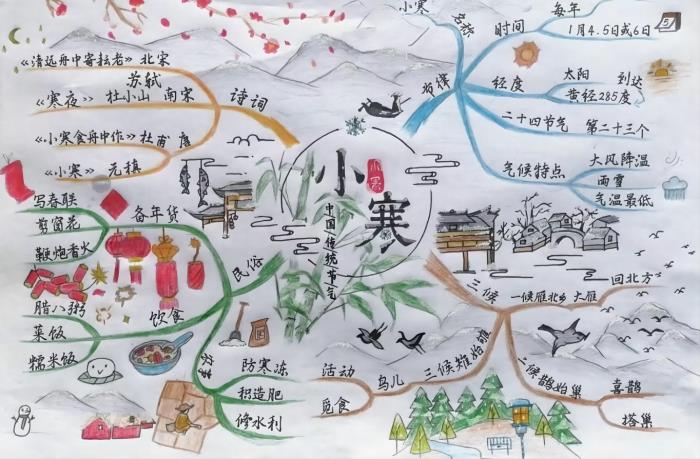 小寒
小寒
中国传统节气
诗词
《清远舟中寄耘老》北宋
苏轼
《寒夜》杜小山 南宋
《小寒食舟中作》杜甫 唐
《小寒》元稹
小寒
名称
时间
每年
1月4.5日或6日
5
经度
太阳
到达
黄经285度
二十四节气
第二十三个
气候特点
大风降温
雨雪
气温最低
民俗
备年货
写春联
剪窗花
鞭炮香火
饮食
腊八粥
菜饭
糯米饭
农事
防寒冻
积造肥
修水利
三候
一候雁北乡
大雁
回北方
二候鹊始巢
喜鹊
塔巢
三候雉始雊
鸟儿
活动
觅食